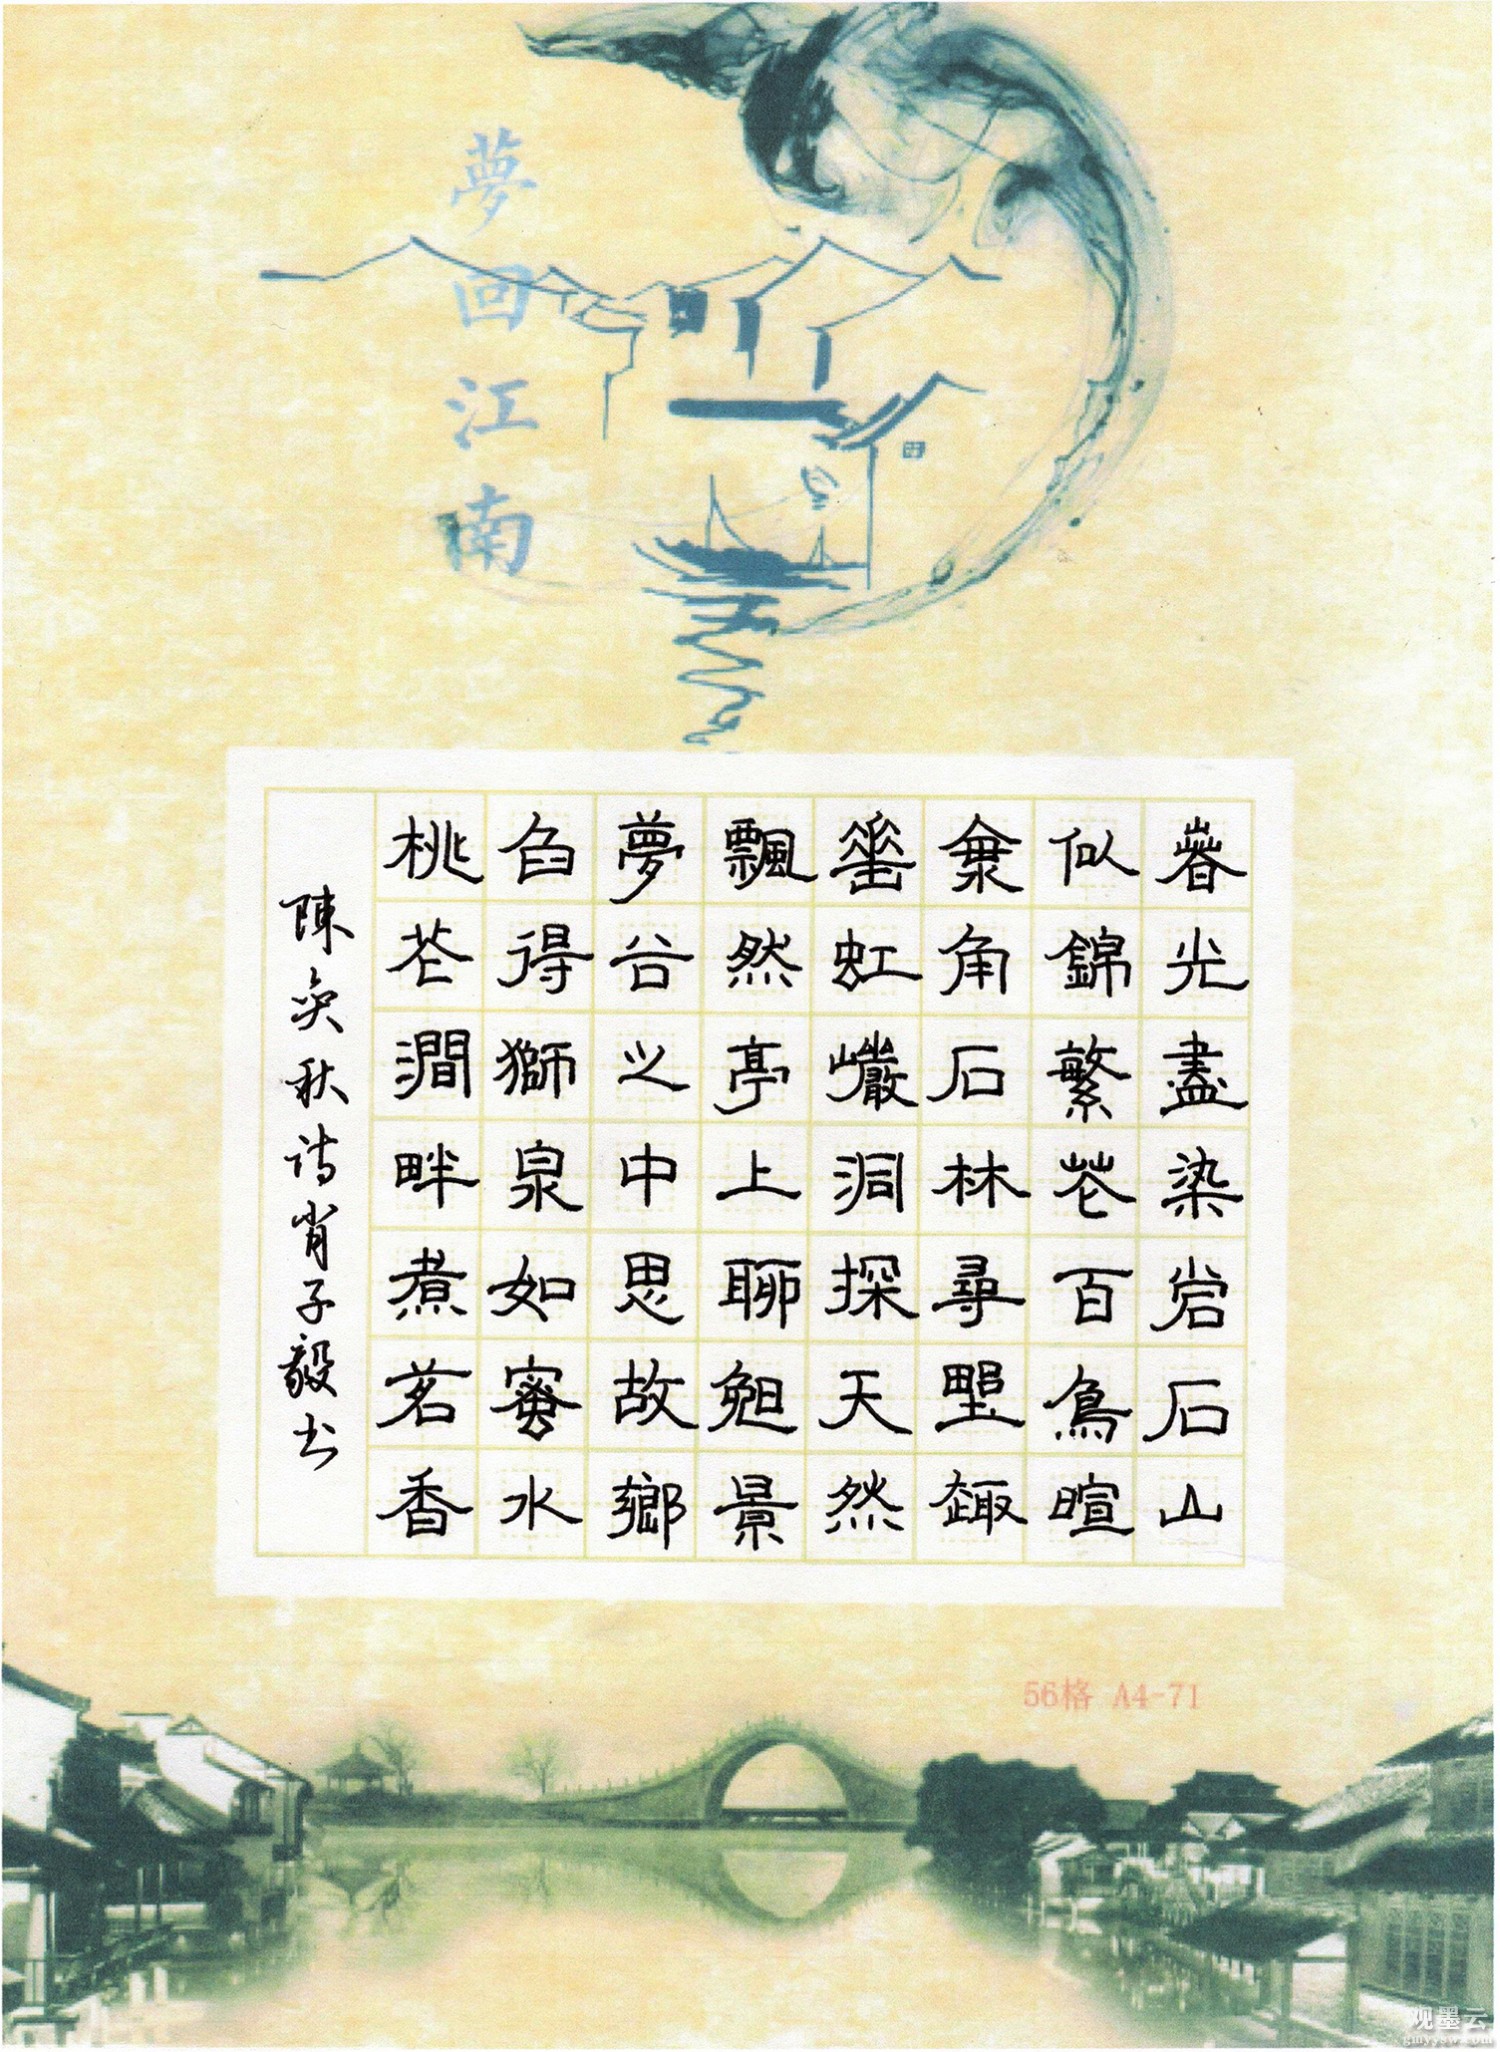 夢回江南
春光盡染岩石山
似錦繁花百鳥暄
角石林尋野趣
華虹巖洞探天然
飄然亭上聊景
夢谷之中思故鄉
舀得獅泉如蜜水
桃花澗畔煮茗香
陳奐秋詩肖子毅书
56格 A4-71
观墨云
gmyysw.com